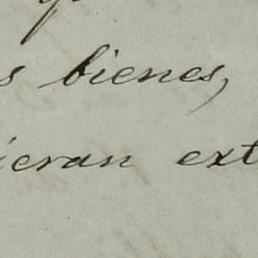 s bienes,
ieran ext